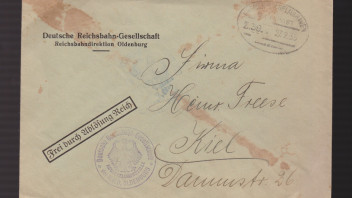 Deutsche Reichsbahn-Gesellschaft
Reichsbahndirektion Oldenburg
Firma
Heinr. Freese
Kiel
Dammstr 26
Frei durch Ablösung Reich